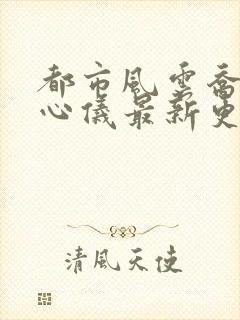 都市風雲喬
心儀最新更
清風天使